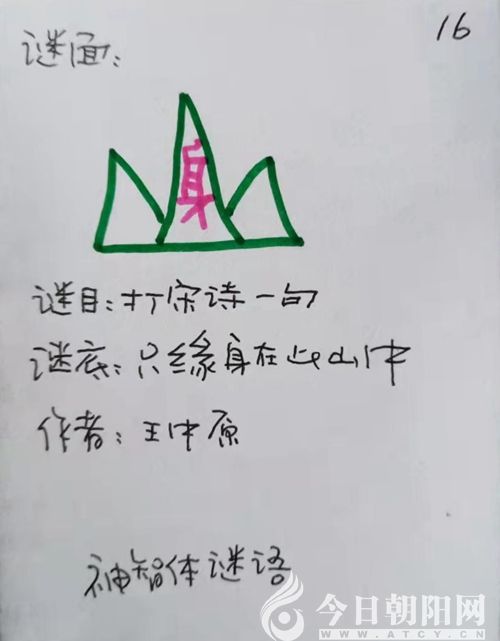 16
谜面：
身
谜目：打宋诗一句
谜底：只缘身在此山中
作者：王中原
神智体谜语
今日朝阳网
WWW.ATCY.CN